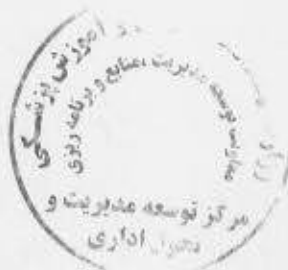 آموزش پزشکی
معاونت توسعه مدیریت، منابع و برنامه ریزی
مرکز توسعه مدیریت و
تحول اداری